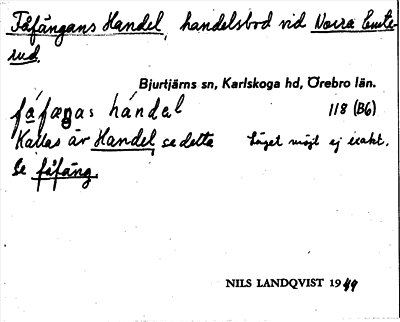 Fåfängans Handel, handelsbod vid Norra Emte-
rud.
Bjurtjärns sn, Karlskoga hd, Örebro län.
fåfæŋas hándel 118 (B6)
Kallas är Handel, se detta Läget möjl ej exakt.
Se fåfäng.
NILS LANDQVIST 1949